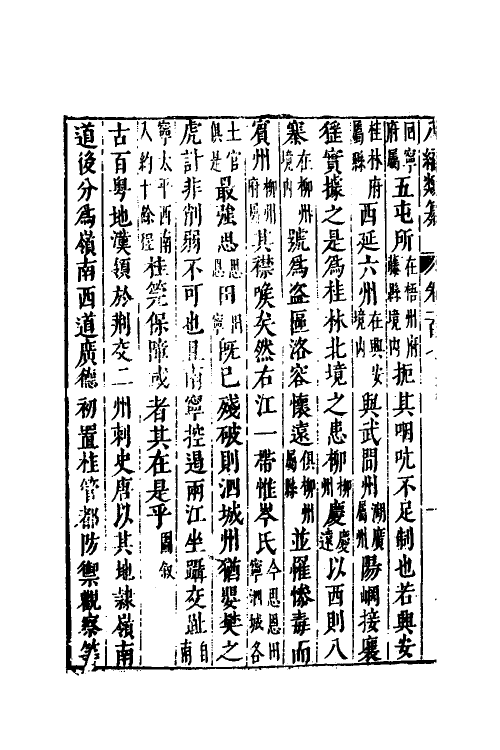 八編類纂　卷一百
同寧府屬五屯所在梧州府藤縣境內扼其咽吭不足制也若興安
桂林府屬縣西延六州在興安境內與武岡州湖廣屬州陽峒接襄
猺實據之是爲桂林北境之患柳柳州慶慶遠以西則八
寨在柳州境內號爲盜區洛容懷遠俱柳州屬縣並罹慘毒而
賓州柳州府屬其襟喉矣然右江一帶惟岑氏今思恩田寧泗城各
土官俱是最強思思恩田田寧旣已殘破則泗城州猶嬰樊之
虎計非削弱不可也且南寧控遏兩江坐躡交趾自南
寧太平西南入約十餘程桂筦保障或者其在是乎圖敘
古百粵地漢領於荆交二州刺史唐以其地隷嶺南
道後分爲嶺南西道廣德初置桂管都防禦觀察等